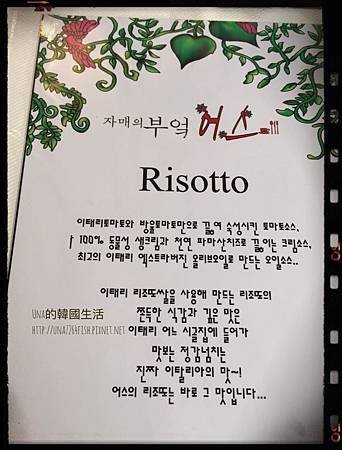 자매의 부엌 어스
Risotto
이태리토마토와 방울토마토마으로 끓여 숙성시킨 토마토소스,
100% 동물성 생크림과 천연 파마산치즈로 끓이는 크림소스,
최고의 이태리 엑스트라버진 올리브오일로 만드는 오일소스..
이태리 리조또쌀을 사용해 만드는 리조또의
쫀득한 식감과 깊은 맛은
UNA的韓國生活
HTTP://UNA724FISH.PIXNET.NET
이태리 어느 시골집에 들어가
맛보는 정감넘치는
진짜 이탈리아의 맛~!
어스의 리조또는 바로 그 맛입니다...